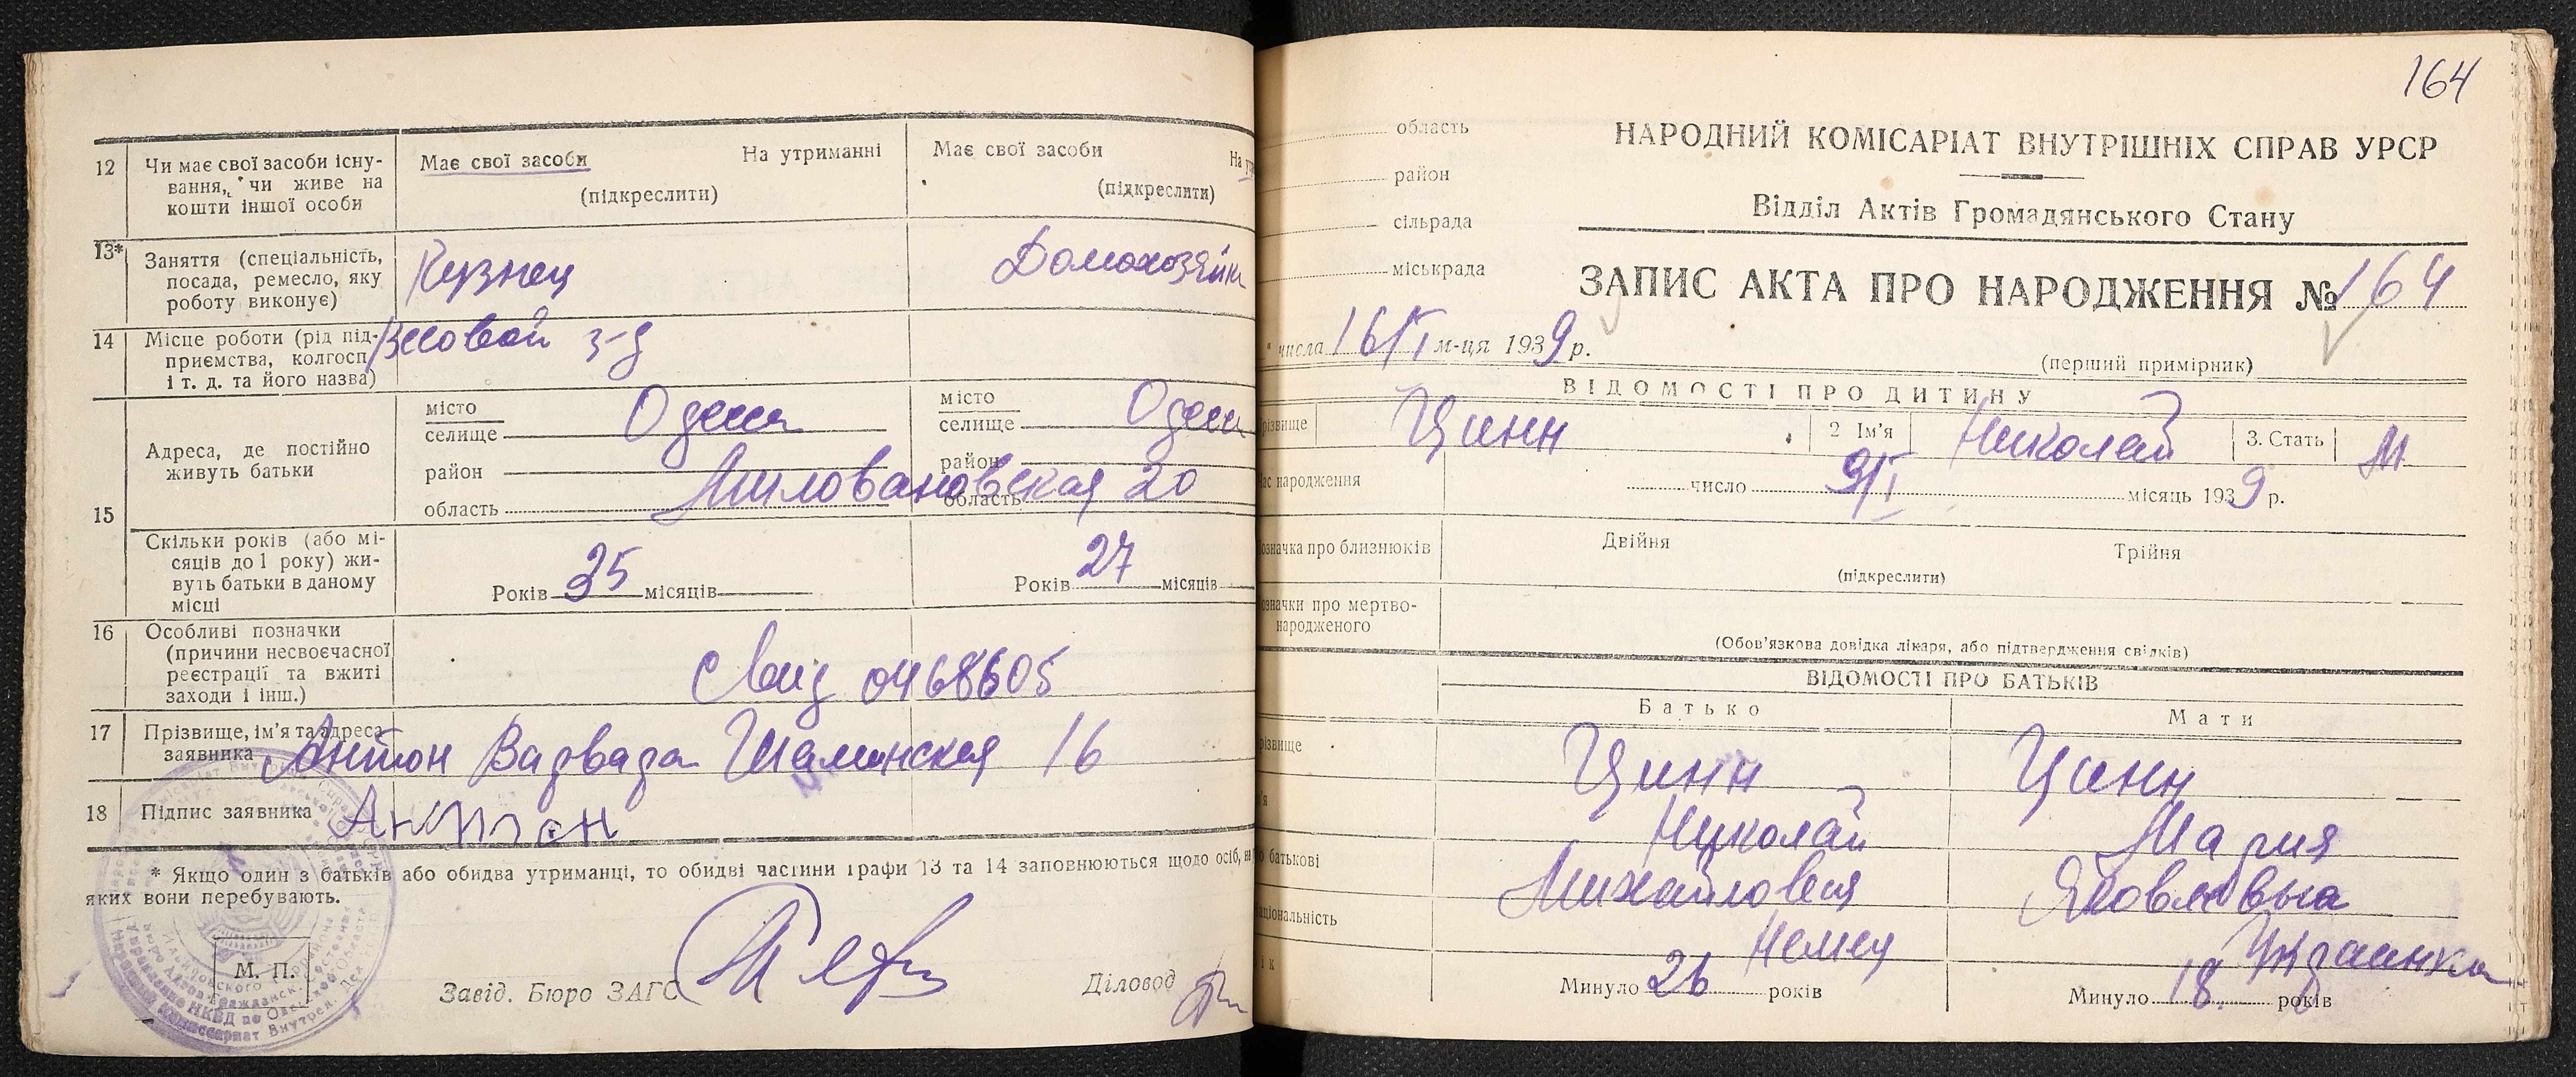 12 Чи має свої засоби існу-
вання, чи живе на
кошти іншої особи
Має свої засоби На утриманні
(підкреслити)
Має свої засоби На
(підкреслити)
13* Заняття (спеціальність,
посада, ремесло, яку
роботу виконує)
Кузнец
Домохозяйк
14 Місце роботи (рід під-
приємства, колгосп
і т. д. та його назва)
Весовой з-д
15 Адреса, де постійно
живуть батьки
місто
селище Одесса
район
область
місто
селище Одесс
район
область
Миловановская 20
Скільки років (або мі-
сяців до 1 року) жи-
вуть батьки в даному
місці
Років 35 місяців
Років 27 місяців
16 Особливі позначки
(причини несвоєчасної
реєстрації та вжиті
заходи і інш.)
Свид 0468605
17 Прізвище, ім'я та адреса
заявника Антон Варвара 16
18 Підпис заявника Антон
* Якщо один з батьків або обидва утриманці, то обидві частини графи 13 та 14 заповнюються щодо осіб, на
яких вони перебувають.
М. П.
Завід. Бюро ЗАГС
Діловод
164
область
район
сільрада
міськрада
НАРОДНИЙ КОМІСАРІАТ ВНУТРІШНІХ СПРАВ УРСР
Відділ Актів Громадянського Стану
ЗАПИС АКТА ПРО НАРОДЖЕННЯ № 164
" числа 16/I м-ця 1939 р.
(перший примірник)
ВІДОМОСТІ ПРО ДИТИНУ
різвище Цинн 2 Ім'я Николай 3. Стать М
ас народження число 9/I місяць 1939 р.
означка про близнюків Двійня Трійня
(підкреслити)
означки про мертво-
народженого
(Обов'язкова довідка лікаря, або підтвердження свідків)
ВІДОМОСТІ ПРО БАТЬКІВ
Батько Мати
різвище Цинн Цинн
м'я Николай Мария
о батькові Михайлович Яковлевна
аціональність Немец Украинка
ік Минуло 26 років Минуло 18 років